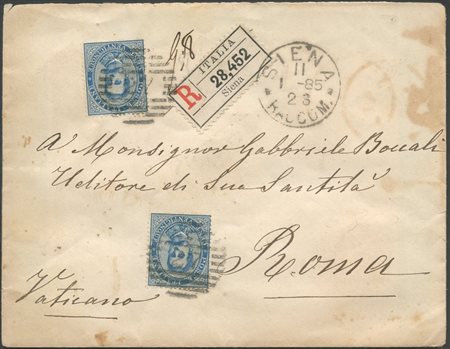 98
ITALIA
R
28,452
Siena
SIENA
11
1 - 85
2 S
RACCOM.
A' Monsignor Gabbriele Boccali
Uditore di Sua Santità
Roma
Vaticano